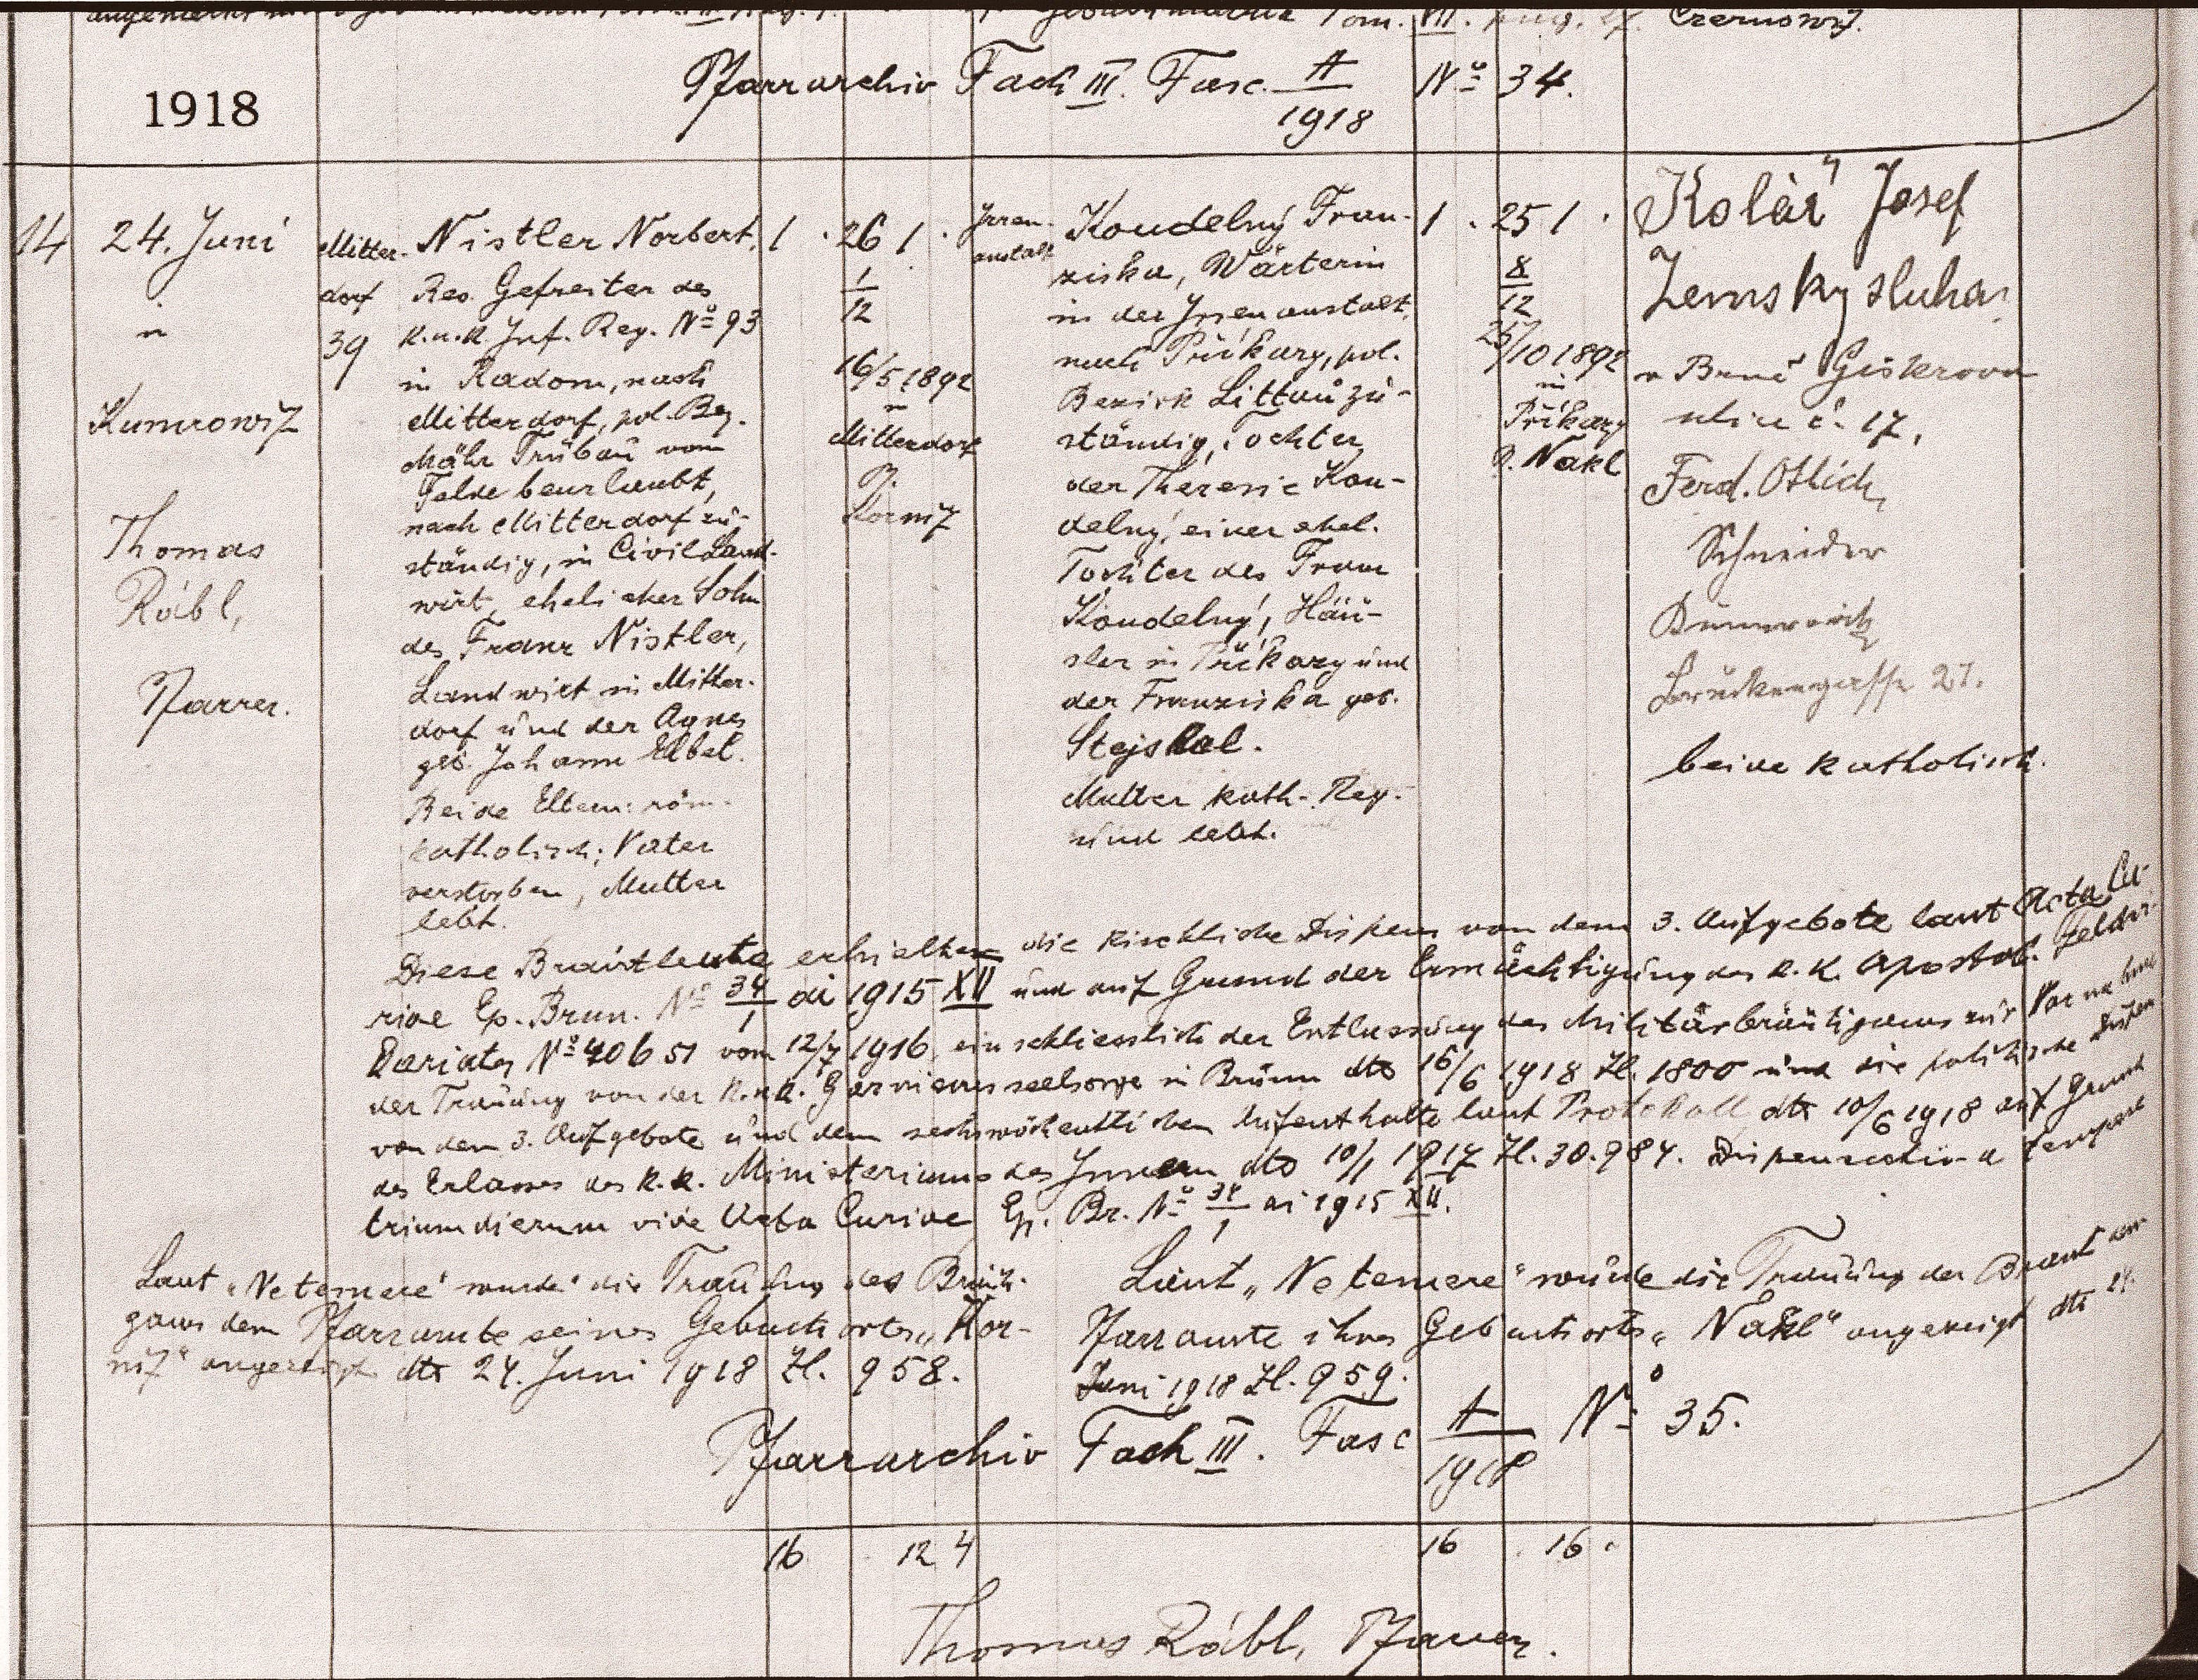 Pfarrarchiv Fach III. Fasc. A/1918 Nº 34.
1918
14
24. Juni
in
Kumrowitz
Thomas
Rábl,
Pfarrer.
Mitter-
dorf
39
Nistler Norbert,
Res. Gefreiter des
k.u.k. Inf. Reg. Nº 93
in Radom, nach
Mitterdorf, pol. Bez.
Mähr Trübau vom
Felde beurlaubt,
nach Mitterdorf zu-
ständig, in Civil Land-
wirt, ehelicher Sohn
des Franz Nistler,
Landwirt in Mitter-
dorf und der Agnes
geb. Johann Elbel.
Beide Eltern röm.
katholisch; Vater
verstorben, Mutter
lebt.
1 . 26 1 .
1/12
16/5 1892
in
Mitterdorf
P.
Kornitz
Irren-
anstalt
Koudelný Fran-
ziska, Wärterin
in der Irrenanstalt,
nach Přikazy, pol.
Bezirk Littau zu-
ständig, Tochter
der Theresie Kou-
delný, einer ehel.
Tochter des Franz
Koudelný, Häu-
sler in Přikazy und
der Franziska geb.
Stejskal.
Mutter kath. Rel.
und lebt.
1 . 25 1 .
8/12
25/10 1892
in
Přikazy
P. Nakl
Kolář Josef
Zemský sluha
v Brně Giskrova
ulice č. 17,
Ferd. Otlich,
Schneider
27.
beide katholisch.
Diese Brautleute erhielten die kirchliche Dispens von dem 3. Aufgebote laut Acta Cu-
riae Ep. Brun. Nº 34/1 di 1915 XII und auf Grund der Ermächtigung des k.k. Apostol. Feldvi-
kariates Nº 40651 vom 12/7 1916, einschliesslich der Entlassung des Militärbräutigams zur Vornahme
der Trauung von der k.u.k. Garnisonsseelsorge in Brünn dto 16/6 1918 Zl. 1800 und die politische Dispens
von dem 3. Aufgebote und dem sechswöchentlichen Aufenthalte laut Protokoll dto 10/6 1918 auf Grund
des Erlasses des k.k. Ministeriums des Innern dto 10/1 1917 Zl. 30.984. Dispensatio a tempore
trium dierum vide Acta Curiae Ep. Br. Nº 34/1 ai 1915 XII.
Laut „Ne temere" wurde die Trauung des Bräuti-
gams dem Pfarramte seines Geburtsortes „Kor-
nitz" angezeigt dto 24. Juni 1918 Zl. 958.
Laut „Ne temere" wurde die Trauung der Braut dem
Pfarramte ihres Geburtsortes „Nakl" angezeigt dto 24.
Juni 1918 Zl. 959.
Pfarrarchiv Fach III. Fasc A/1918 Nº 35.
16 . 12 4 16 . 16 .
Thomas Rábl, Pfarrer.